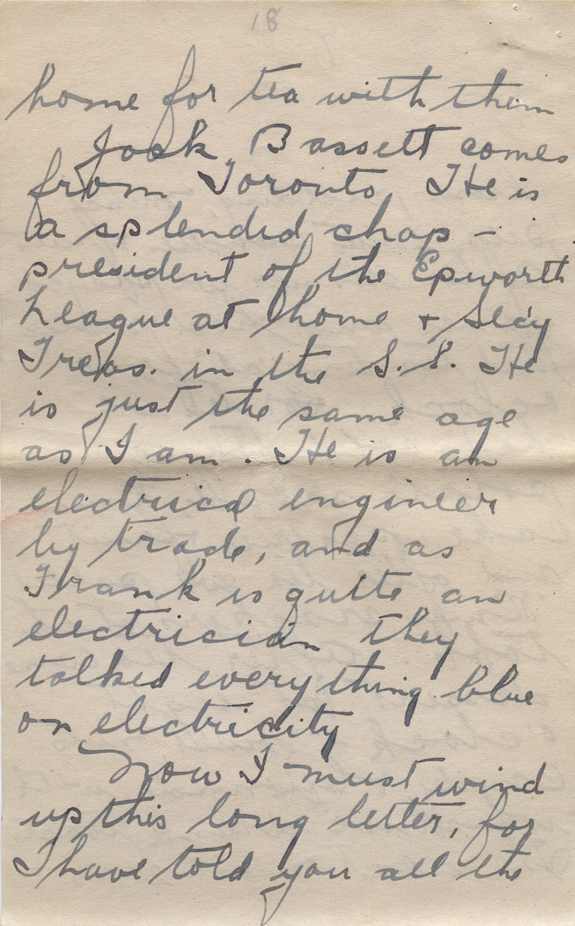 18
home for tea with them
Jack Bassett comes
from Toronto. He is
a splended chap -
president of the Epworth
League at home + Secy
Treas. in the S.S. He
is just the same age
as I am. He is an
electrical engineer
by trade, and as
Frank is quite an
electrician they
talked everything blue
on electricity
Now I must wind
up this long letter, for
I have told you all the